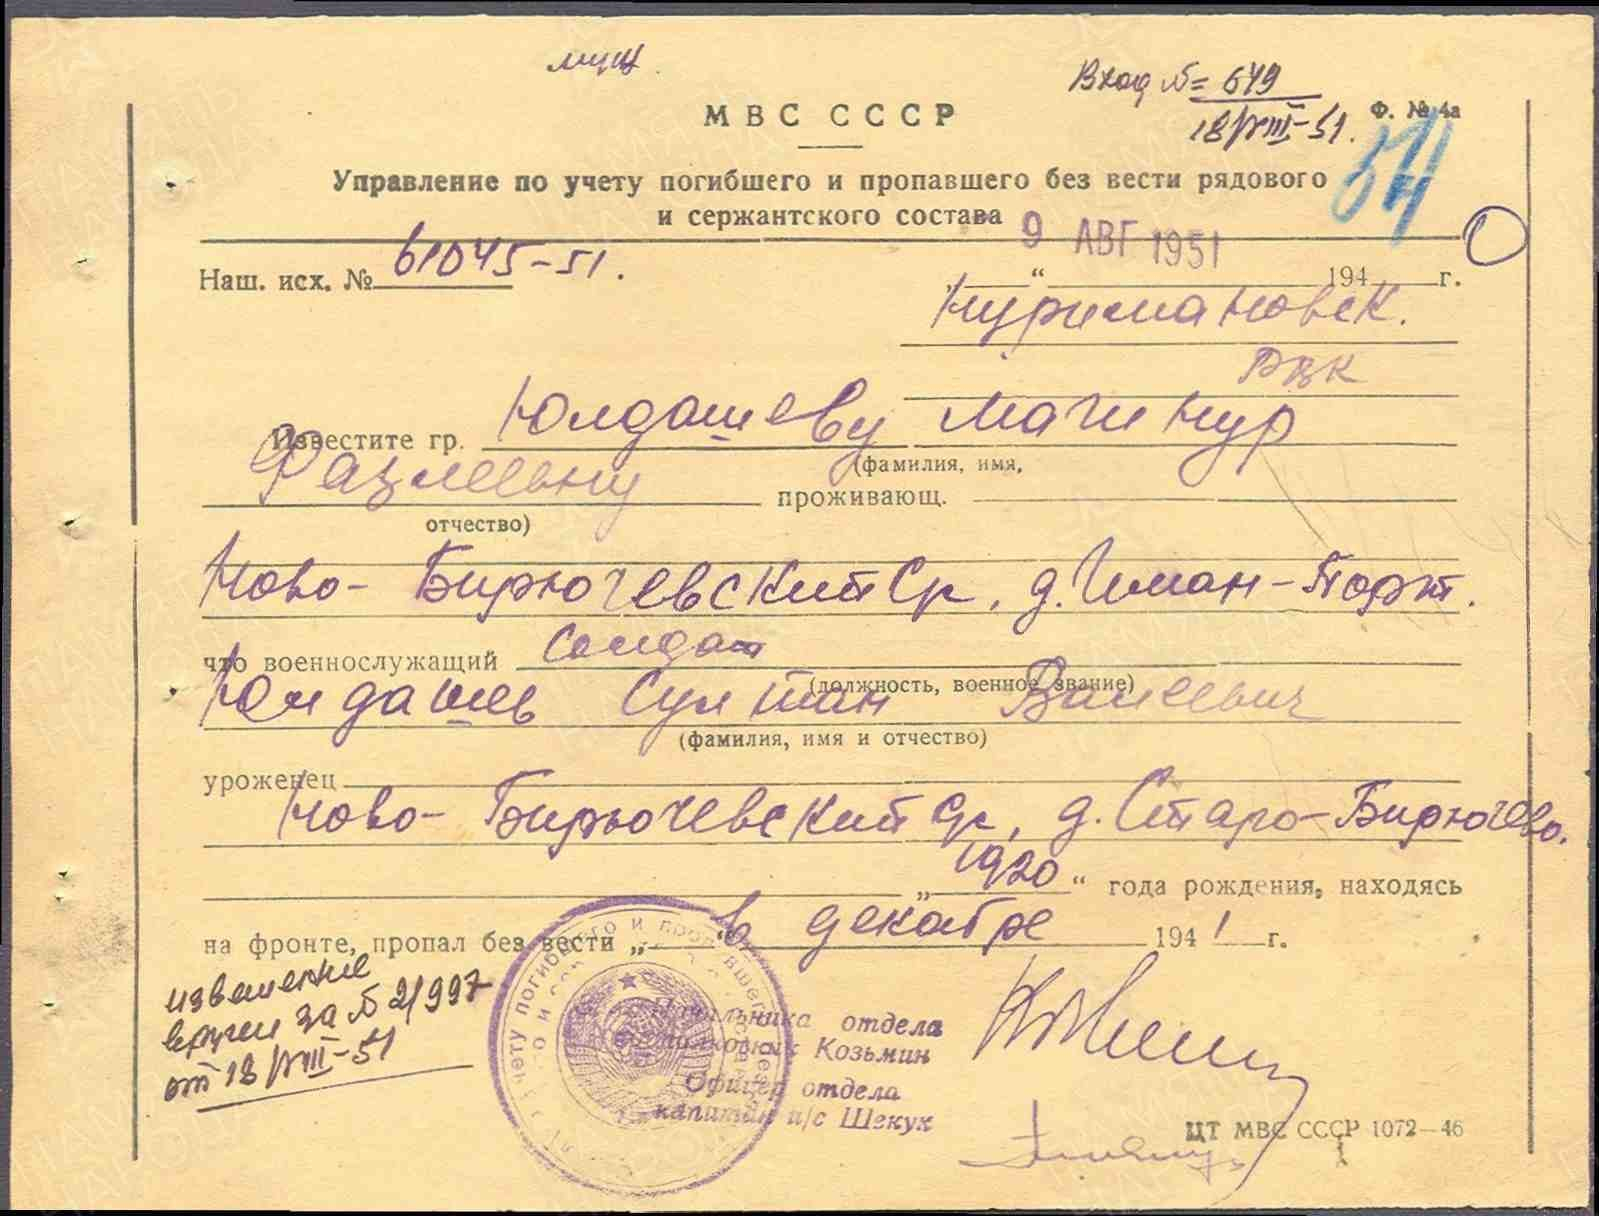 Вход № 649
18/VIII-51.
МВС СССР
Ф. № 4а
Управление по учету погибшего и пропавшего без вести рядового
и сержантского состава
9 АВГ 1951
Наш. исх. № 61045-51.
„ “ 194 г.
Нуримановск.
РВК
Известите гр. Юлдашеву Магинур
(фамилия, имя,
проживающ.
отчество)
Ново-Бирючевский с/с, д. Иман-Порт.
что военнослужащий солдат
(должность, военное звание)
Юлдашев Султан Валиевич
(фамилия, имя и отчество)
уроженец
Ново-Бирючевский с/с, д. Старо-Бирючево.
„ 1920 “ года рождения, находясь
на фронте, пропал без вести „ “ в декабре 1941 г.
извещение
вручен за № 2/997
от 18/VIII-51
Начальника отдела
полковник Козьмин
Офицер отдела
капитан и/с Шекук
ЦТ МВС СССР 1072—46